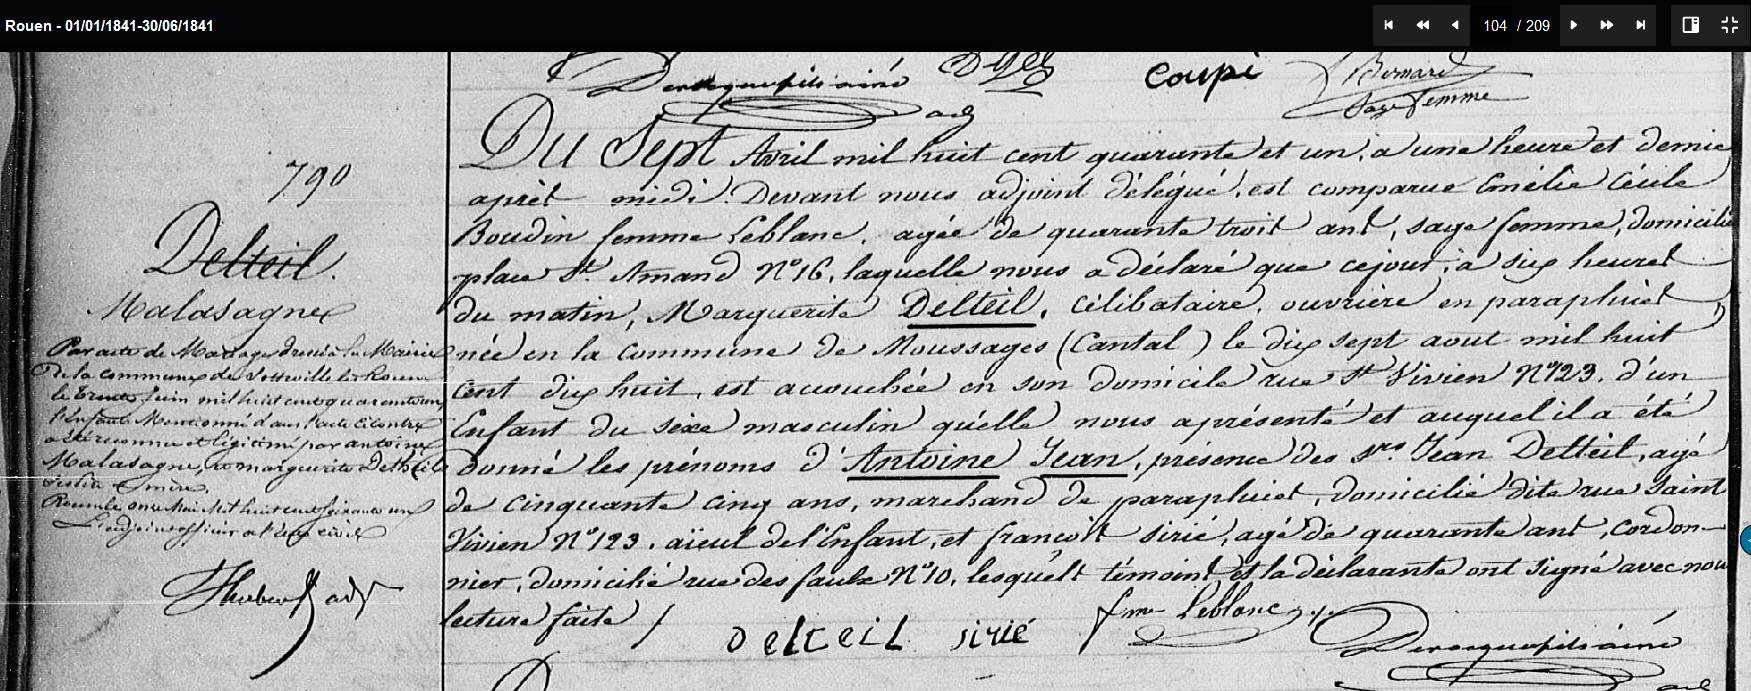 Rouen - 01/01/1841-30/06/1841
104 / 209
Coupé
Bernard
Sage femme
adj
790
Delteil.
Malasagne
Par acte de Mariage dressé à la Mairie
De la commune de Sotteville lès Rouen
le trente Juin mil huit cent quarante un,
l'Enfant Mentionné dans l'acte Ci contre
a été reconnu et légitimé par antoine
Malasagne, et marguerite Delteil
ses père & mère.
Rouen le onze Mai Mil huit cent soixante un
L'adjoint officier de l'état civil
adjt
Du Sept Avril mil huit cent quarante et un, à une heure et demie
après midi. Devant nous adjoint délégué, est comparue Emélie Cécile
Boudin femme Leblanc, agée de quarante trois ans, sage femme, domiciliée
place St. Amand No. 16, laquelle nous a déclaré que cejour, à six heures
du matin, Marguerite Delteil, célibataire, ouvrière en parapluies,
née en la commune de Moussages (Cantal) le dix sept aout mil huit
cent dix huit, est accouchée en son domicile rue St Vivien No. 123, d'un
Enfant du sexe masculin qu'elle nous a présenté et auquel il a été
donné les prénoms d'Antoine Jean, présence des Srs. Jean Delteil, agé
de cinquante cinq ans, marchand de parapluies, domicilié dite rue Saint
Vivien No. 123, aïeul de l'Enfant, et françois sirié, agé de quarante ans, cordon-
nier, domicilié rue des faulx No. 10, lesquels témoins et la déclarante ont signé avec nous
lecture faite /
Delteil sirié fme Leblanc